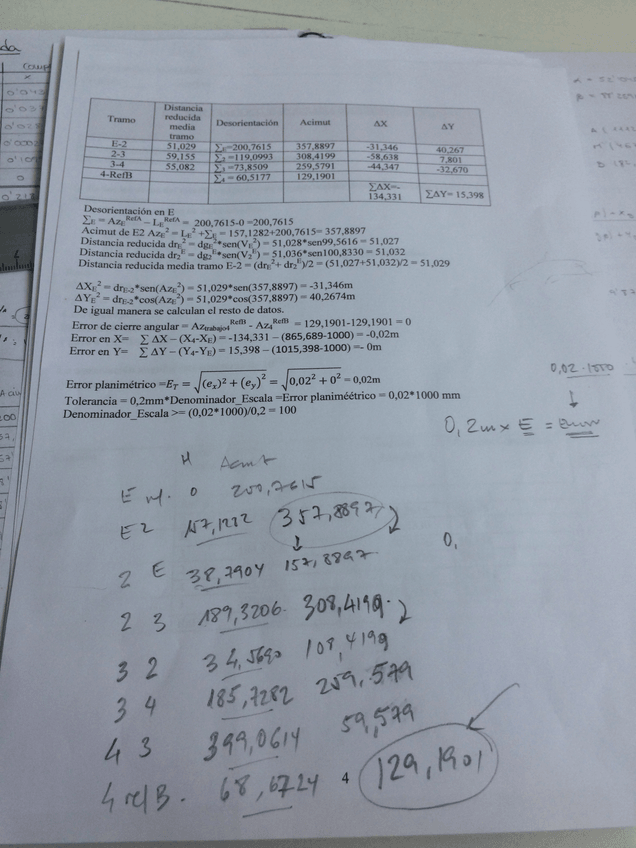 Tramo Distancia reducida media tramo Desorientación Acimut ΔX ΔY
E-2 51,029 ∑E=200,7615 357,8897 -31,346 40,267
2-3 59,155 ∑2=119,0993 308,4199 -58,638 7,801
3-4 55,082 ∑3=73,8509 259,5791 -44,347 -32,670
4-RefB ∑4= 60,5177 129,1901
∑ΔX=-134,331 ∑ΔY= 15,398
Desorientación en E
∑E = AzE^RefA – LE^RefA = 200,7615-0 =200,7615
Acimut de E2 AzE^2 = LE^2 +∑E = 157,1282+200,7615= 357,8897
Distancia reducida drE^2 = dgE^2*sen(VE^2) = 51,028*sen99,5616 = 51,027
Distancia reducida dr2^E = dg2^E*sen(V2^E) = 51,036*sen100,8330 = 51,032
Distancia reducida media tramo E-2 = (drE^2+ dr2^E)/2 = (51,027+51,032)/2 = 51,029
ΔXE^2 = drE-2*sen(AzE^2) = 51,029*sen(357,8897) = -31,346m
ΔYE^2 = drE-2*cos(AzE^2) = 51,029*cos(357,8897) = 40,2674m
De igual manera se calculan el resto de datos.
Error de cierre angular = Aztrabajo4^RefB - Az4^RefB = 129,1901-129,1901 = 0
Error en X= ∑ ΔX – (X4-XE) = -134,331 –(865,689-1000) = -0,02m
Error en Y= ∑ ΔY – (Y4-YE) = 15,398 –(1015,398-1000) =- 0m
Error planimétrico =ET = √(ex)² + (ey)² = √0,02² + 0² = 0,02m
Tolerancia = 0,2mm*Denominador_Escala =Error planiméétrico = 0,02*1000 mm
Denominador_Escala >= (0,02*1000)/0,2 = 100
0,02·1000
0,2m x E = Error
H Acimut
E ref. 0 200,7615
E 2 157,1282 357,8897
0,
2 E 38,7904 157,8897
2 3 189,3206 308,4199
3 2 34,5690 108,4199
3 4 185,7282 259,579
4 3 399,0614 59,579
4 refB. 68,6724 129,1901
4